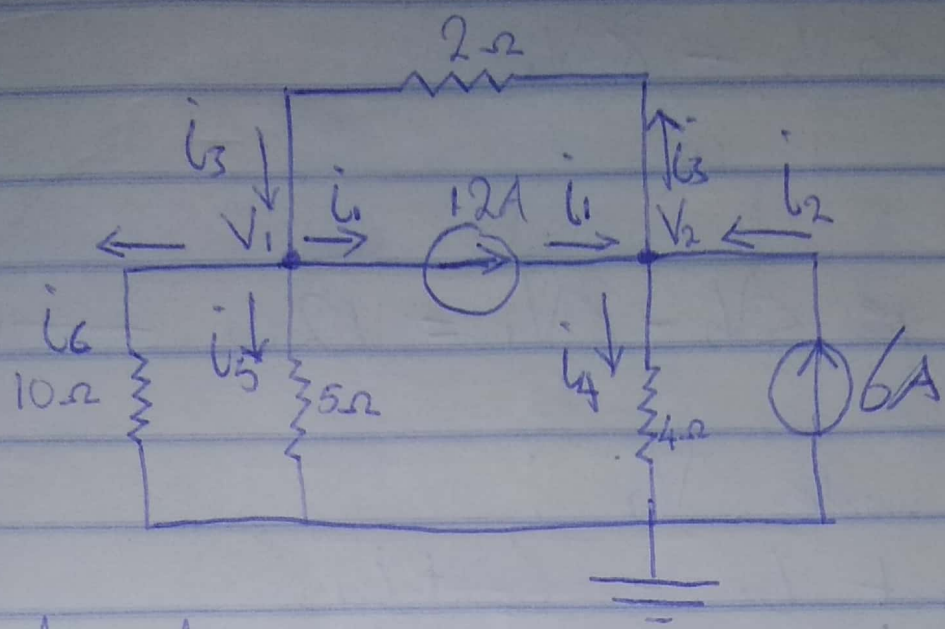 2Ω
i₃
i₃
V₁ i₁ 12A i₁ V₂ i₂
i₆ i₅ i₄
10Ω 5Ω 4Ω 6A